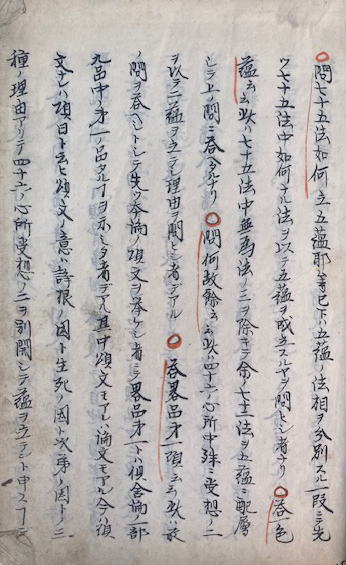 ○問七十五法如何立五蘊耶等已下ハ五蘊ノ法相ヲ分別スル一段ニテ先
ツ七十五法中如何ナル法ヲ以テ五蘊ヲ成立スルヤヲ問シ者ナリ○答色
蘊云云此ハ七十五法中無為法ノ三ヲ除キテ余ノ七十二法ヲ五蘊ニ配属
シテ上ノ問ニ答ヘタルナリ○問何故餘云云此ハ四十六ノ心所中殊ニ受想ノ二
ヲ以テ二蘊ヲ立テシ理由ヲ問シ者デアル○答畧品才一頌云云此ハ最
ノ問ヲ答ヘントシテ先ツ本論ノ頌文ヲ挙ケシ者ニテ畧品才一トハ倶舎論ノ一部
九品中ノ才一ノ品タル丁ヲ示シタ者デアル其中頌文モアレハ論文モアル今ハ頌
文ナレハ頌曰ト云ヒ頌文ノ意ハ諍根ノ因ト生死ノ因ト次第ノ因トノ三
種ノ理由アリテ四十六ノ心所受想ノ二ヲ別開シテ蘊ヲ立テント申ス丁ニテ